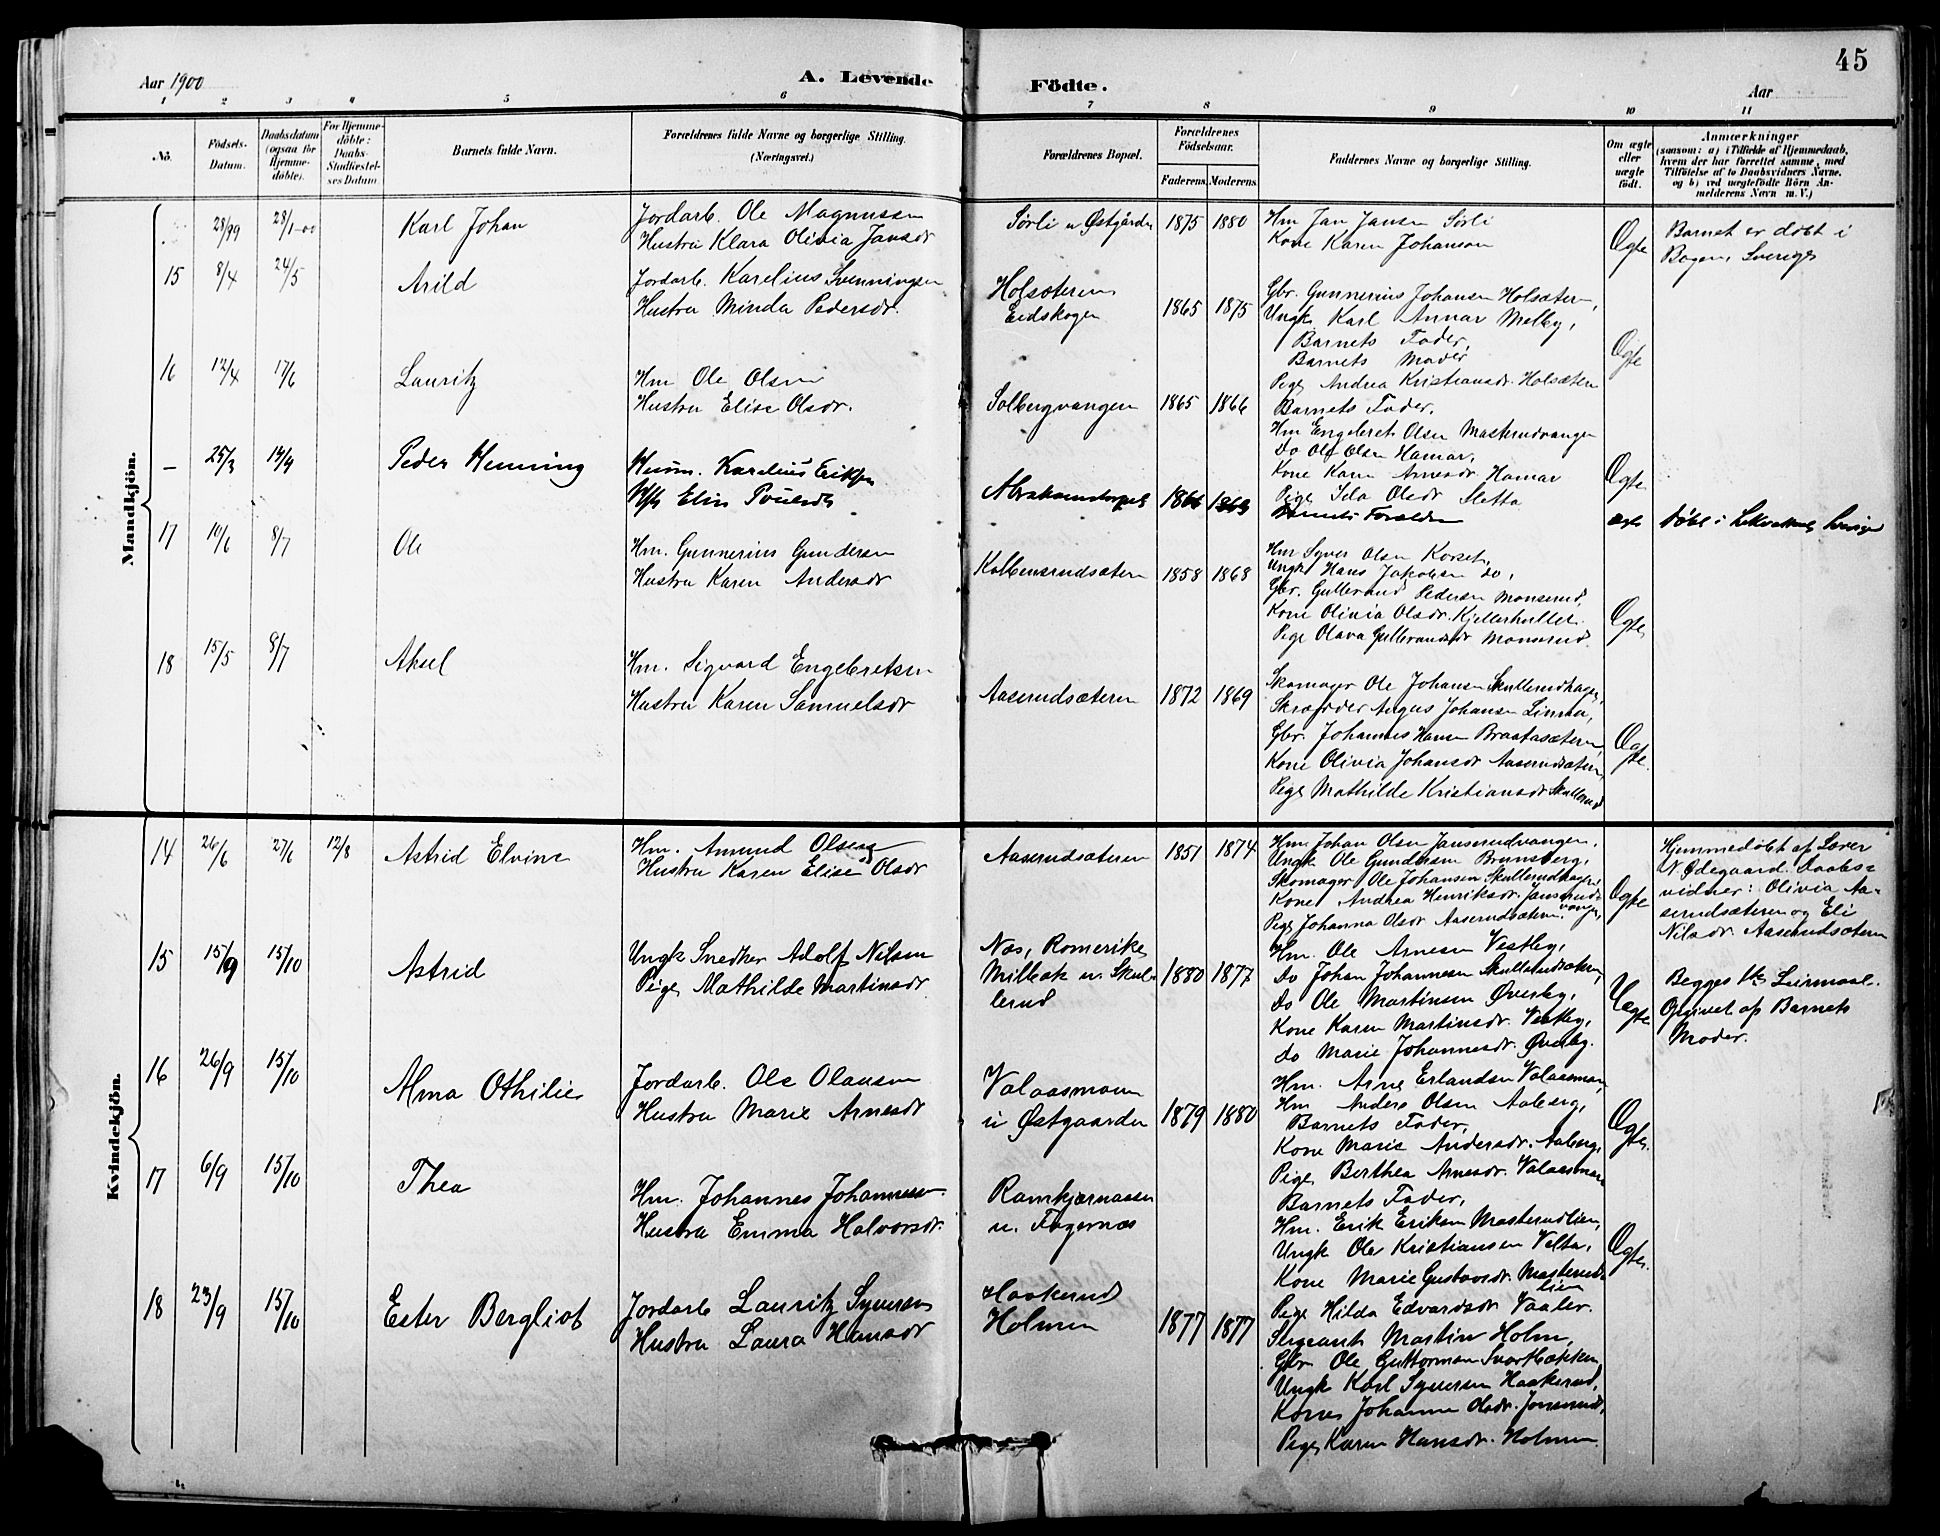 45
Aar 1900
A. Levende Födte.
Aar
1 2 3 4 5 6 7 8 9 10 11
No.
Födsels-Datum.
Daabsdatum (ogsaa for Hjemme-döbte).
For Hjemme-döbte: Daabs-Stadfæstel-ses Datum
Barnets fulde Navn.
Forældrenes fulde Navne og borgerlige Stilling. (Næringsvei.)
Forældrenes Bopæl.
Forældrenes Födselsaar.
Faderens. Moderens.
Faddernes Navne og borgerlige Stilling.
Om ægte eller uægte födt.
Anmærkninger
(saasom: a) i Tilfælde af Hjemmedaab, hvem der har forrettet samme, med Tilföielse af to Daabsvidners Navne, og b) ved uægtefödte Börn An-melderens Navn m. V.)
Mandkjön.
28/99 28/1-00 Karl Johan
Jordarb. Ole Magnussen
Hustru Klara Olivia Jansdr
Sørli u Østgården 1875 1880
Hm Jan Jansen Sørli
Kone Karen Johanson
Ægte
Barnet er døbt i
Bogen, Sverige
15 8/4 24/5 Arild
Jordarb. Karelius Svenningsen
Hustru Minda Pedersdr.
Holsæteren
Eidskogen 1865 1875
Gbr. Gunnerius Johansen Holsæteren,
Ungk. Karl Annar Melby,
Barnets Fader,
Barnets Moder
Pige Andrea Kristiansdr. Holsæteren
Ægte
16 12/4 17/6 Lauritz
Hm Ole Olsen
Hustru Elise Olsdr.
Solbergvangen 1865 1866
Barnets Fader,
Hm Engebret Olsen Masterudvangen
Do Olf Olsen Hamar,
Kone Karen Arnesdr Hamar
Pige Ida Olsdr Sletta
Ægte
– 25/3 14/4 Peder Henning
Husm. Karelius Eriksen
Elin
Barnets Forældre
ægte døbt i
17 10/6 8/7 Ole
Hm. Gunnerius Gundersen
Hustru Karen Andersdr
Kolbensrudsæteren 1858 1868
Hm Syver Olsen Korset,
Ungk Hans Jakobsen do,
Gbr. Gulbrand Pedersen Monserud,
Kone Olivia Olsdr. Kjellerhullet.
Pige Olava Gulbrandsdr Monserud.
Ægte
18 15/5 8/7 Aksel
Hm. Sigvard Engebretsen
Hustru Karen Samuelsdr
Aaserudsæteren 1872 1869
Skomager Ole Johansen Skullerudhagen,
Skrædder August Johansen Linna,
Gbr. Johannes Hansen Braatasæteren,
Kone Olivia Johansdr Aaserudsæteren,
Pige Mathilde Kristiansdr Skullerud
Ægte.
Kvindekjön.
14 26/6 27/6 12/8 Astrid Elvine
Hm. Amund Olsen
Hustru Karen Elise Olsdr
Aaserudsæteren 1851 1874
Hm Johan Olsen Janserudvangen,
Ungk Ole Gundersen Brunsberg,
Skomager Ole Johansen Skullerudhagen,
Kone Andrea Henriksdr. Janserud-
vangen,
Pige Johanna Olsdr Aaserudsæteren
Ægte
Hjemmedøbt af Lærer
N. Ødegaard. Daabs=
vidner: Olivia Aa-
serudsæteren og Eli
Nilsdr. Aaserudsæteren
15 15/9 15/10 Astrid
Ungk Snedker Adolf Nilsen
Pige Mathilde Martinsdr.
Næs, Romerike,
Milbak u. Skul-
lerud 1880 1877
Hm. Ole Arnesen Vestby,
Do Johan Johannesen Skullerudsæteren,
Do Ole Martinsen Øverby,
Kone Karen Martinsdr. Vestby,
Do Marie Johannesdr. Øverby.
Uægte
Begges 1ste Leirmaal.
Opgivet af Barnets
Moder.
16 26/9 15/10 Alma Othilie
Jordarb. Ole Olausen
Hustru Marie Arnesdr
Valaasmoen
u Østgaarden 1879 1880
Hm. Arne Erlandsen Valaasmoen,
Hm Anders Olsen Aaberg,
Barnets Fader,
Kone Marie Andersdr. Aaberg,
Pige Berthea Arnesdr. Valaasmoen
Ægte.
17 6/9 15/10 Thea
Hm. Johannes Johannesen
Hustru Emma Halvorsdr.
Ramkjærnaasen
u. Fagernæs
Barnets Fader,
Hm. Erik Eriksen Masterudlien,
Ungk Ole Kristiansen Velta,
Kone Marie Gustavsdr. Masterud-
lien
Pige Hilda Edvardsdr Vaaler.
Ægte.
18 23/9 15/10 Ester Bergliot
Jordarb Lauritz Syversen
Hustru Laura Hansdr
Haakerud
Holmen 1877 1877
Sergeant Martin Holm,
Gbr Ole Guttormsen Svartbækken,
Ungk Karl Syversen Haakerud,
Kone Johanne Olsdr. Jonsrud,
Pige Karen Hansdr. Holmen.